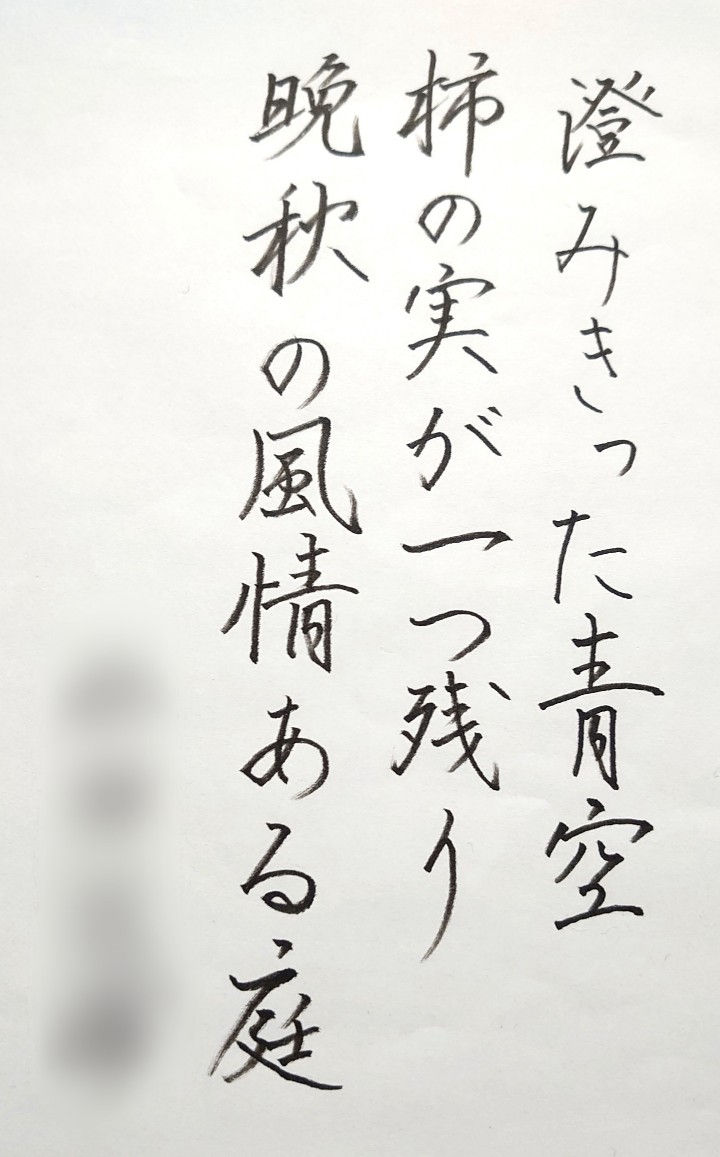 澄みきった青空
柿の実が一つ残り
晩秋の風情ある庭